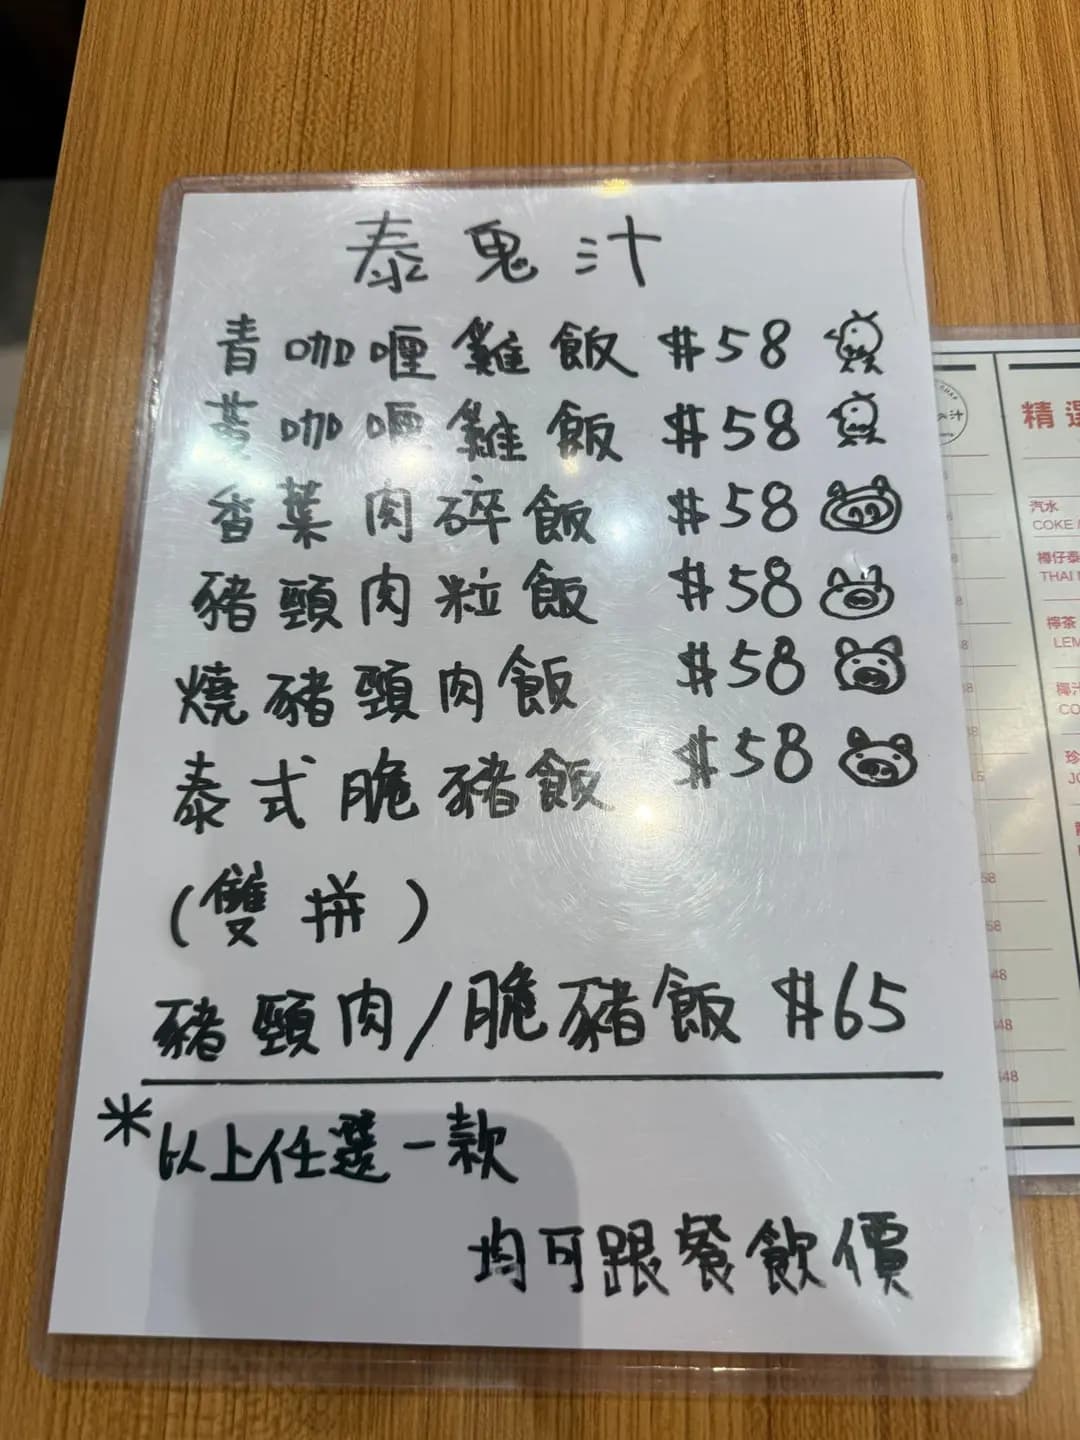 泰鬼汁
青咖喱雞飯 $58
黃咖喱雞飯 $58
香葉肉碎飯 $58
豬頸肉粒飯 $58
燒豬頸肉飯 $58
泰式脆豬飯 $58
(雙拼)
豬頸肉/脆豬飯 $65
*以上任選一款
均可跟餐飲價
汁
精選
汽水
COKE
樽仔泰
THAI
檸茶
LEM
椰汁
CO
珍
JO
58
58
48
48
$48